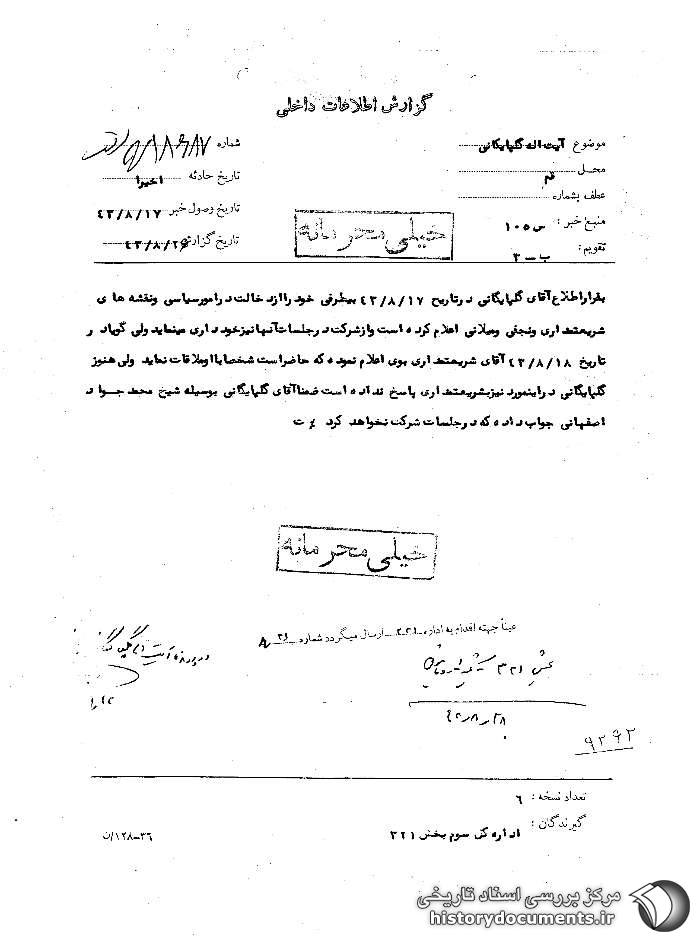 گزارش اطلاعات داخلی
موضوع آیت اله گلپایگانی
محل قم
عطف بشماره
منبع خبر : س ۱۰۵
تقویم : ب ـ ۳
شماره
تاریخ حادثه اخیرا
تاریخ وصول خبر ۴۳/۸/۱۷
تاریخ گزارش ۴۳/۸/۲۶
خیلی محرمانه
بقرار اطلاع آقای گلپایگانی در تاریخ ۴۳/۸/۱۷ بیطرفی خود را از دخالت در امور سیاسی و نقشه های
شریعتمداری و نجفی و میلانی اعلام کرده است و از شرکت در جلسات آنها نیز خود داری مینماید ولی گویا در
تاریخ ۴۳/۸/۱۸ آقای شریعتمداری بوی اعلام نموده که حاضر است شخصا با او ملاقات نماید ولی هنوز
گلپایگانی در اینمورد نیز بشریعتمداری پاسخ نداده است ضمنا آقای گلپایگانی بوسیله شیخ محمد جواد
اصفهانی جواب داده که در جلسات شرکت نخواهد کرد
خیلی محرمانه
عیناً جهته اقدام به اداره ارسال میگردد شماره
بخش ۳۲۱
۹۲۹۲
تعداد نسخه : ۶
گیرندگان : اداره کل سوم بخش ۳۲۱
۳۶-۱۲۸/ن
مرکز بررسی اسناد تاریخی
historydocuments.ir